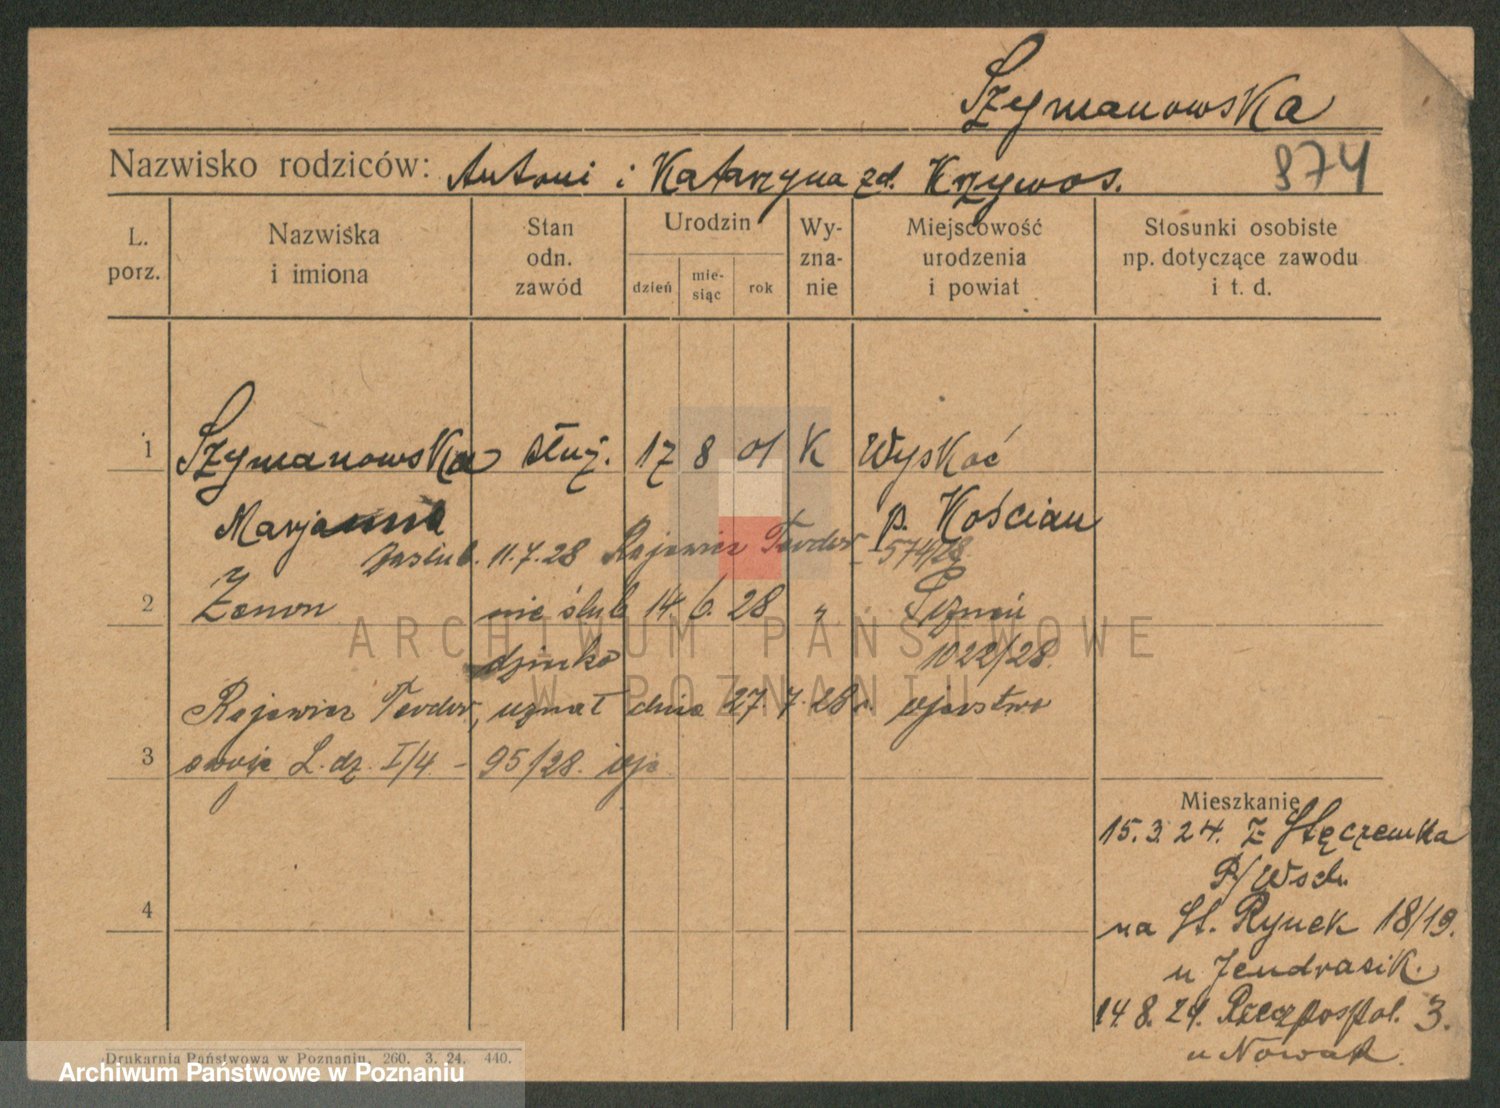 Szymanowska
Nazwisko rodziców: Antoni i Katarzyna zd. Krzywos.
874
L. porz.
Nazwiska i imiona
Stan odn. zawód
Urodzin
dzień
mie-siąc
rok
Wy-zna-nie
Miejscowość urodzenia i powiat
Stosunki osobiste np. dotyczące zawodu i t. d.
1 Szymanowska służ. 17 8 01 K Wyskoć
Marjanna p. Kościan
zaślub. 11.7.28 Rajewicz Teodor - 574/28
2 Zenon nie ślub 14. 6. 28 " Poznań
dziecko 1022/28
Rajewicz Teodor, uznał dnia 27.7.28 r. ojcostwo
3 swoje L. dz. I/4 - 95/28.
4
Mieszkanie
15.3.24. z Stęczewka
P/Wsch.
na St. Rynek 18/19.
u Jendrasik.
14.8.24. Rzeczpospol. 3.
u Nowak.
Drukarnia Państwowa w Poznaniu. 260. 3. 24. 440.
ARCHIWUM PAŃSTWOWE
W POZNANIU
Archiwum Państwowe w Poznaniu